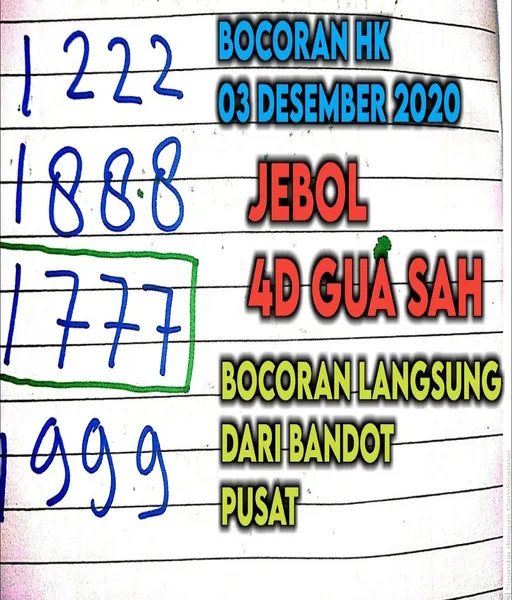 1222
BOCORAN HK
03 DESEMBER 2020
1888
JEBOL
4D GUA SAH
1777
BOCORAN LANGSUNG
DARI BANDOT
PUSAT
1999